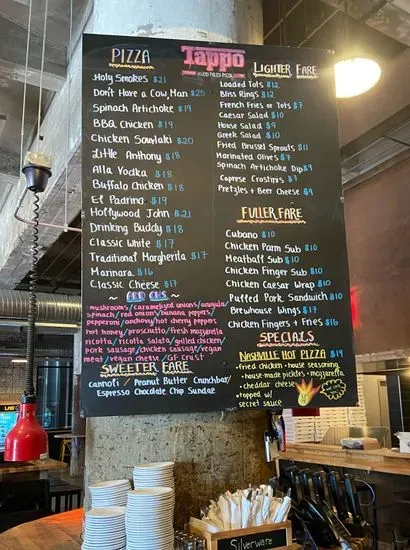 PIZZA
Holy Smokes $21
Don't Have a Cow Man $25
Spinach Artichoke $19
BBQ Chicken $19
Chicken Souvlaki $20
Little Anthony $18
Alla Vodka $18
Buffalo Chicken $18
El Padrino $19
Hollywood John $21
Drinking Buddy $18
Classic White $17
Traditional Margherita $17
Marinara $16
Classic Cheese $17
~ ADD ONS ~
mushrooms/caramelized onions/arugula
spinach/red onions/banana peppers/
pepperoni/anchovy/hot cherry peppers
hot honey/prosciutto/fresh mozzarella
ricotta/ricotta salata/grilled chicken/
pork sausage/chicken sausage/vegan
meat/vegan cheese/GF Crust
SWEETER FARE
Cannoli / Peanut Butter Crunchbar/
Espresso Chocolate Chip Sundae
Tappo
WOOD FIRED PIZZA
LIGHTER FARE
Loaded Tots $12
Bliss Rings $12
French Fries or Tots $7
Caesar Salad $10
House Salad $9
Greek Salad $10
Fried Brussel Sprouts $11
Marinated Olives $7
Spinach Artichoke Dip $9
Caprese Crostinis $7
Pretzles + Beer Cheese $9
FULLER FARE
Cubano $10
Chicken Parm Sub $10
Meatball Sub $10
Chicken Finger Sub $10
Chicken Caesar Wrap $10
Pulled Pork Sandwich $10
Brewhouse Wings $17
Chicken Fingers + Fries $16
SPECIALS
NASHVILLE HOT PIZZA $19
• fried chicken • house seasoning
• house-made pickles • mozzarella
• cheddar cheese
• topped w/
secret sauce
Silverware